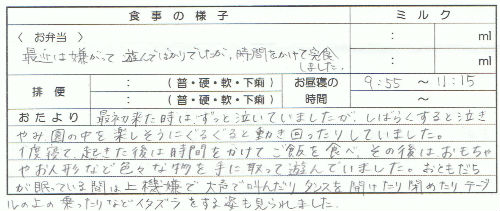 食事の様子 ミルク
〈お弁当〉 : ml
最近は嫌がって遊んでばかりでしたが、時間をかけて完食しました。 : ml
排便 : (普・硬・軟・下痢) お昼寝の時間 9:55 ～ 11:15
: (普・硬・軟・下痢) ～
おたより 最初来た時はずっと泣いていましたが、しばらくすると泣き
やみ園の中を楽しそうにぐるぐると動き回ったりしていました。
1度寝て、起きた後は時間をかけてご飯を食べ、その後はおもちゃ
やお人形など色々な物を手に取って遊んでいました。おともだち
が眠っている間は上機嫌で大声で叫んだりタンスを開けたり閉めたりテーブ
ルの上の乗ったりなどイタズラをする姿も見られました。